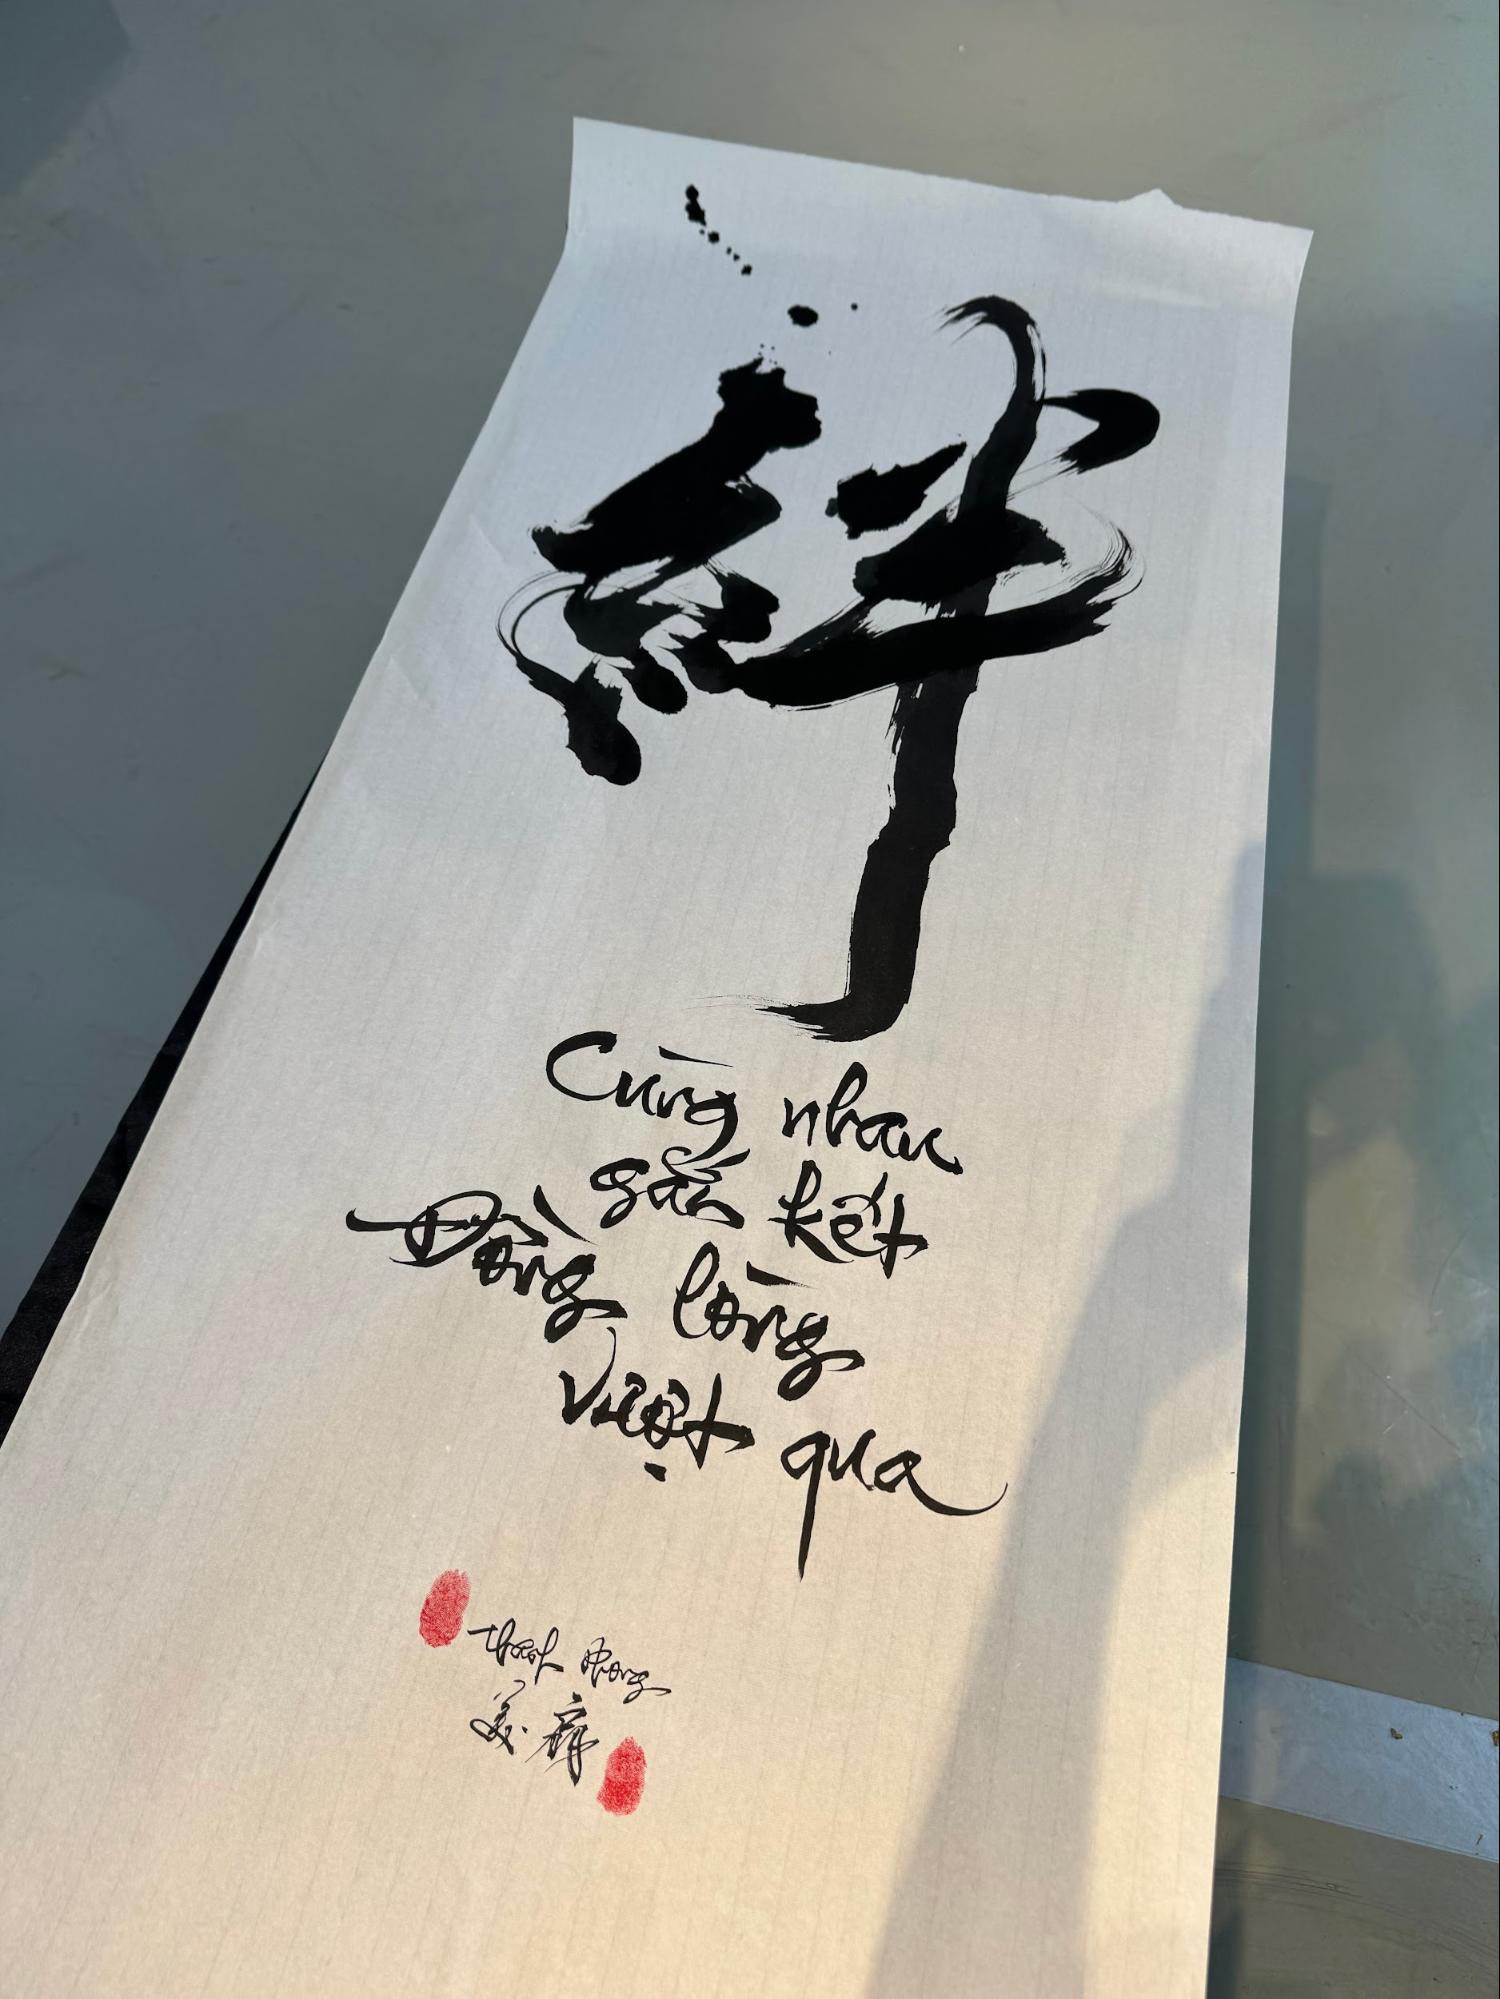 絆
Cùng nhau
gắn kết
Đồng lòng
vượt qua
thanh phong
美